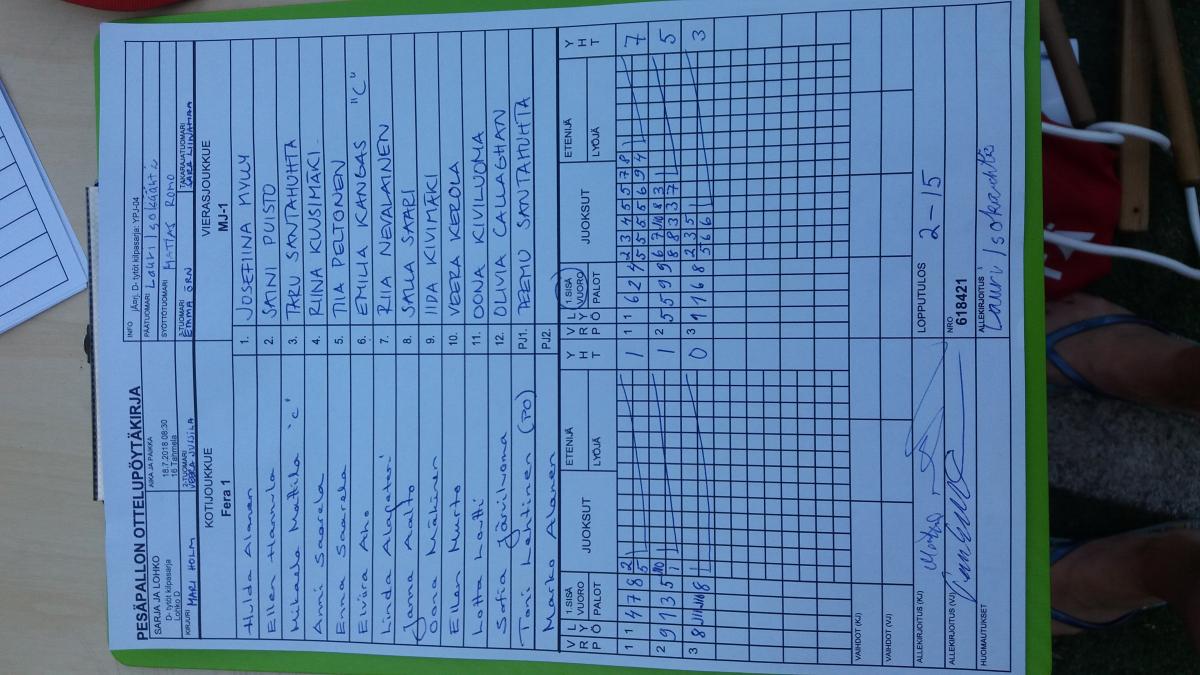 PESÄPALLON OTTELUPÖYTÄKIRJA
SARJA JA LOHKO
D- tytöt kilpasarja
Lohko D
AIKA JA PAIKKA
18.7.2018 08:30
16 Tahmela
INFO järj. D- tytöt kilpasarja: YPJ-04
PÄÄTUOMARI Lauri Isokääntä
SYÖTTÖTUOMARI MATIAS ROMO
KIRJURI MARI HOLM
2-TUOMARI
3-TUOMARI EMMA ÖRN
TAKARAJATUOMARI
KOTIJOUKKUE
Fera 1
VIERASJOUKKUE
MJ-1
Hulda Alanen 1. JOSEFIINA MYLLY
Ellen Hannula 2. SAINI PUISTO
Mikaela Mattila "c" 3. TARU SANTAHUHTA
Anni Saarela 4. RIINA KUUSIMÄKI
Enna Saarela 5. TIIA PELTONEN
Elvira Aho 6. EMILIA KANGAS "C"
Linda Alapateri 7. RIIA NEVALAINEN
Janna Aalto 8. SALLA SAARI
Oona Mäkinen 9. IIDA KIVIMÄKI
Ellen Nurto 10. VEERA KEROLA
Lotta Lautti 11. OONA KIVILUOMA
Sofia Järviluoma 12. OLIVIA CALLAGHAN
Toni Lehtinen (PO) PJ1. TEEMU SANTAHUHTA
Marko Alanen PJ2.
V P L Y Ö 1.SISÄ VUORO PALOT JUOKSUT ETENIJÄ LYÖJÄ Y H T
1 1 4 7 8 2 5 1
2 9 1 3 5 1
3 8 0
1 1 6 2 4 2 3 4 5 5 7 8 7
5 5 5 5 6 9 4
2 5 5 9 9 6 7 10 8 3 5
8 8 3 3 7
3 11 6 8 2 3 5 3
5 6 6
VAIHDOT (KJ)
VAIHDOT (VJ)
ALLEKIRJOITUS (KJ)
LOPPUTULOS 2-15
ALLEKIRJOITUS (VJ)
NRO
618421
HUOMAUTUKSET
ALLEKIRJOITUS
Lauri Isokääntä